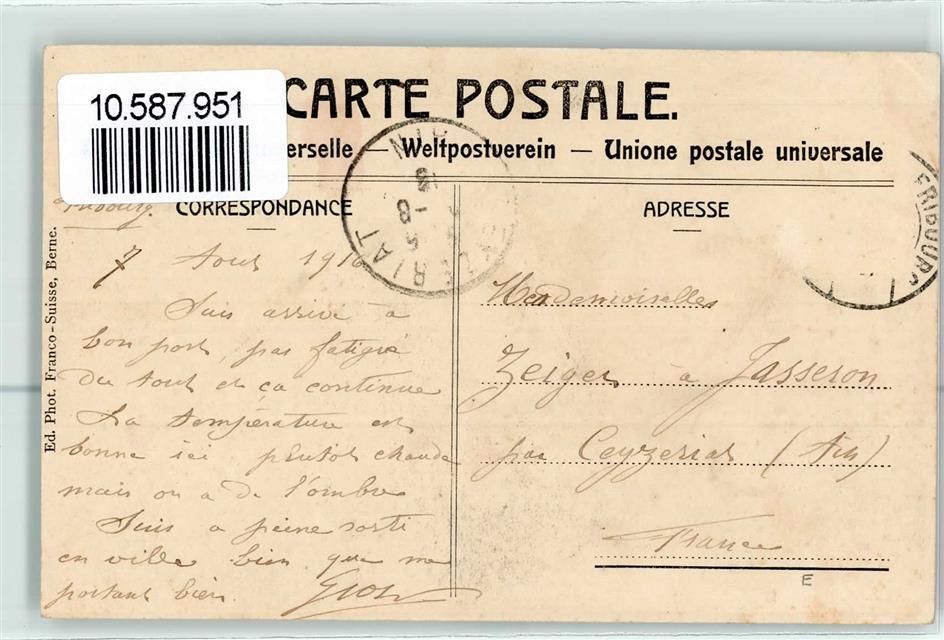 10.587.951
CARTE POSTALE.
erselle — Weltpostverein — Unione postale universale
CORRESPONDANCE
ADRESSE
Ed. Phot. Franco-Suisse, Berne.
Fribourg.
7 Aout 1910
Suis arrivé à
bon port, pas fatigué
du tout et ça continue
La température est
bonne ici plutot chaude
mais on a de l'ombre
Suis a peine sorti
en ville bien que me
portant bien.
Mesdemoiselles
Zeiger à Jasseron
par Ceyzeriat (Ain)
France
E
FRIBOURG